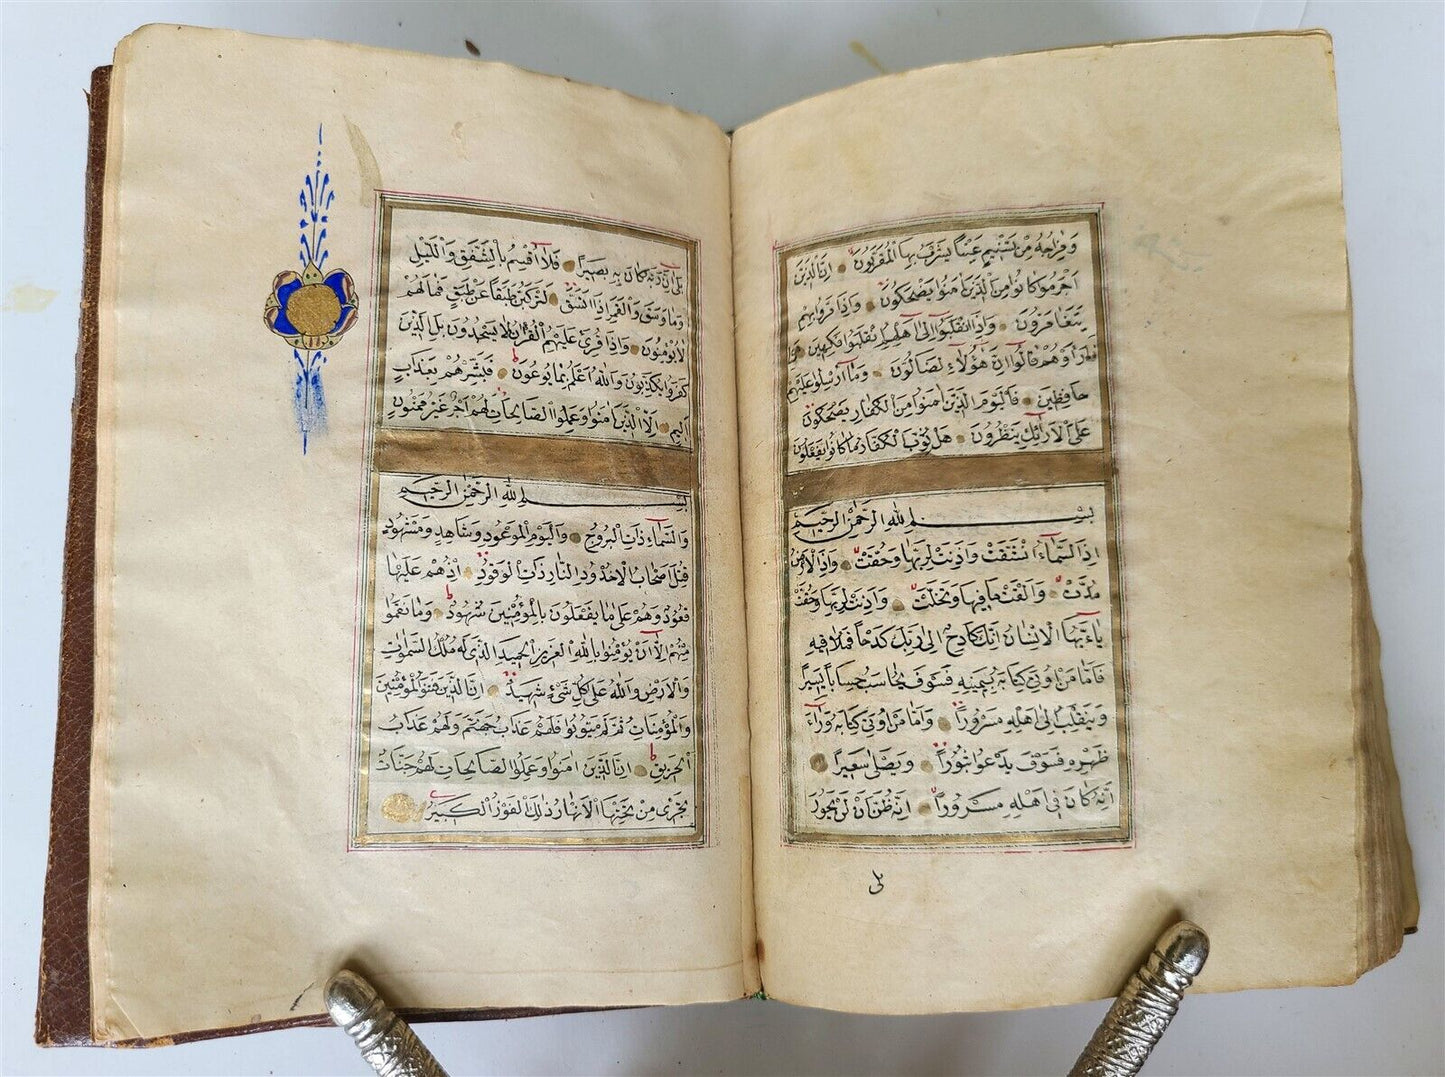 وَمِزَاجُهُ مِنْ تَسْنِيمٍ عَيْنًا يَشْرَبُ بِهَا الْمُقَرَّبُونَ اِنَّ الَّذِينَ
اَجْرَمُوا كَانُوا مِنَ الَّذِينَ اٰمَنُوا يَضْحَكُونَ وَاِذَا مَرُّوا بِهِمْ
يَتَغَامَزُونَ وَاِذَا انْقَلَبُوا اِلٰى اَهْلِهِمُ انْقَلَبُوا فَكِهِينَ وَاِذَا
رَاَوْهُمْ قَالُوا اِنَّ هٰؤُلَاءِ لَضَالُّونَ وَمَا اُرْسِلُوا عَلَيْهِمْ
حَافِظِينَ فَالْيَوْمَ الَّذِينَ اٰمَنُوا مِنَ الْكُفَّارِ يَضْحَكُونَ
عَلَى الْاَرَائِكِ يَنْظُرُونَ هَلْ ثُوِّبَ الْكُفَّارُ مَا كَانُوا يَفْعَلُونَ
بِسْمِ اللّٰهِ الرَّحْمٰنِ الرَّحِيمِ
اِذَا السَّمَاءُ انْشَقَّتْ وَاَذِنَتْ لِرَبِّهَا وَحُقَّتْ وَاِذَا الْاَرْضُ
مُدَّتْ وَاَلْقَتْ مَا فِيهَا وَتَخَلَّتْ وَاَذِنَتْ لِرَبِّهَا وَحُقَّتْ
يَا اَيُّهَا الْاِنْسَانُ اِنَّكَ كَادِحٌ اِلٰى رَبِّكَ كَدْحًا فَمُلَاقِيهِ
فَاَمَّا مَنْ اُوتِيَ كِتَابَهُ بِيَمِينِهِ فَسَوْفَ يُحَاسَبُ حِسَابًا يَسِيرًا
وَيَنْقَلِبُ اِلٰى اَهْلِهِ مَسْرُورًا وَاَمَّا مَنْ اُوتِيَ كِتَابَهُ وَرَاءَ
ظَهْرِهِ فَسَوْفَ يَدْعُوا ثُبُورًا وَيَصْلٰى سَعِيرًا
اِنَّهُ كَانَ فِي اَهْلِهِ مَسْرُورًا اِنَّهُ ظَنَّ اَنْ لَنْ يَحُورَ
بلى
بَلٰى اِنَّ رَبَّهُ كَانَ بِهِ بَصِيرًا فَلَا اُقْسِمُ بِالشَّفَقِ وَالَّيْلِ
وَمَا وَسَقَ وَالْقَمَرِ اِذَا اتَّسَقَ لَتَرْكَبُنَّ طَبَقًا عَنْ طَبَقٍ فَمَا لَهُمْ
لَا يُؤْمِنُونَ وَاِذَا قُرِئَ عَلَيْهِمُ الْقُرْاٰنُ لَا يَسْجُدُونَ بَلِ الَّذِينَ
كَفَرُوا يُكَذِّبُونَ وَاللّٰهُ اَعْلَمُ بِمَا يُوعُونَ فَبَشِّرْهُمْ بِعَذَابٍ
اَلِيمٍ اِلَّا الَّذِينَ اٰمَنُوا وَعَمِلُوا الصَّالِحَاتِ لَهُمْ اَجْرٌ غَيْرُ مَمْنُونٍ
بِسْمِ اللّٰهِ الرَّحْمٰنِ الرَّحِيمِ
وَالسَّمَاءِ ذَاتِ الْبُرُوجِ وَالْيَوْمِ الْمَوْعُودِ وَشَاهِدٍ وَمَشْهُودٍ
قُتِلَ اَصْحَابُ الْاُخْدُودِ النَّارِ ذَاتِ الْوَقُودِ اِذْ هُمْ عَلَيْهَا
قُعُودٌ وَهُمْ عَلٰى مَا يَفْعَلُونَ بِالْمُؤْمِنِينَ شُهُودٌ وَمَا نَقَمُوا
مِنْهُمْ اِلَّا اَنْ يُؤْمِنُوا بِاللّٰهِ الْعَزِيزِ الْحَمِيدِ الَّذِي لَهُ مُلْكُ السَّمٰوَاتِ
وَالْاَرْضِ وَاللّٰهُ عَلٰى كُلِّ شَيْءٍ شَهِيدٌ اِنَّ الَّذِينَ فَتَنُوا الْمُؤْمِنِينَ
وَالْمُؤْمِنَاتِ ثُمَّ لَمْ يَتُوبُوا فَلَهُمْ عَذَابُ جَهَنَّمَ وَلَهُمْ عَذَابُ
الْحَرِيقِ اِنَّ الَّذِينَ اٰمَنُوا وَعَمِلُوا الصَّالِحَاتِ لَهُمْ جَنَّاتٌ
تَجْرِي مِنْ تَحْتِهَا الْاَنْهَارُ ذٰلِكَ الْفَوْزُ الْكَبِيرُ